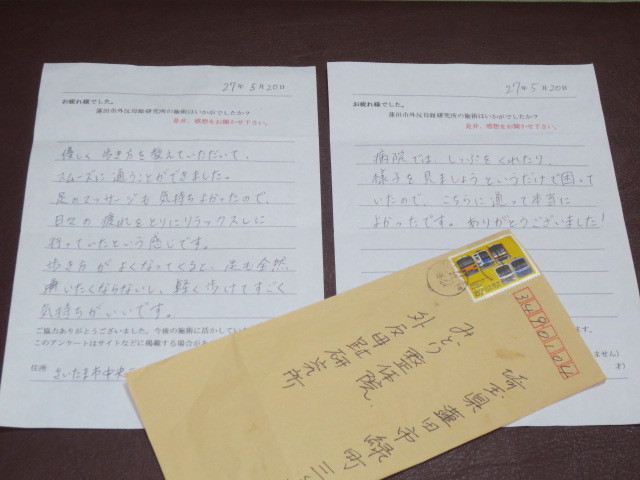 27年5月20日
お疲れ様でした。
蓮田市外反母趾研究所の施術はいかがでしたか？
是非、感想をお聞かせ下さい。
優しく歩き方を教えていただいて、
スムーズに通うことができました。
足のマッサージも気持ちよかったので、
日々の疲れをとりにリラックスしに
行っていたという感じです。
歩き方がよくなってくると、足も全然、
痛いたくならないし、軽く歩けてすごく
気持ちがいいです。
ご協力ありがとうございました。今後の施術に活かしてい
このアンケートはサイトなどに掲載する場合があ
住所 さいたま市中央
27年5月20日
お疲れ様でした。
蓮田市外反母趾研究所の施術はいかがでしたか？
是非、感想をお聞かせ下さい。
病院では、しっぷをくれたり、
様子を見ましょうというだけで困って
いたので、こちらに通って本当に
よかったです。ありがとうございました！
ません）
才）
3490107
埼玉県蓮田市緑町三
みどり整体院.
外反母趾研究所